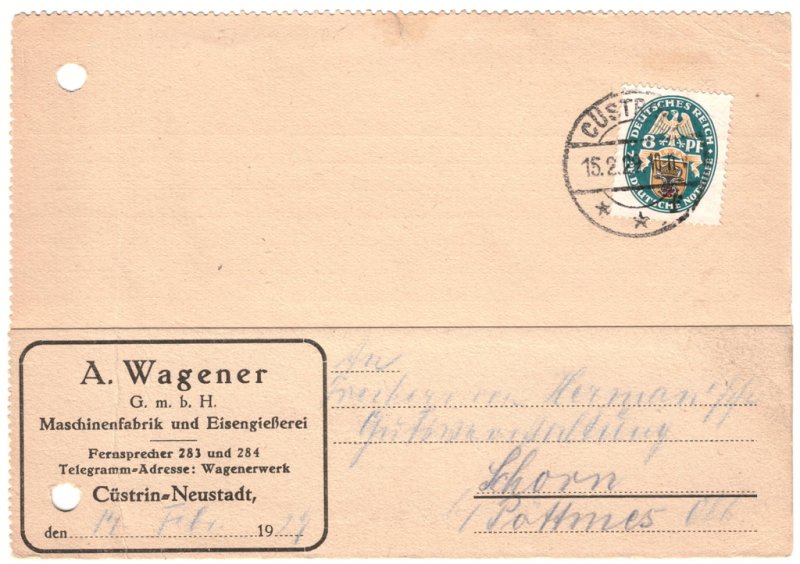 CÜST
15.2.2 10-11
DEUTSCHES REICH
8 PF
DEUTSCHE NOTHILFE
A. Wagener
G. m. b. H.
Maschinenfabrik und Eisengießerei
Fernsprecher 283 und 284
Telegramm-Adresse: Wagenerwerk
Cüstrin-Neustadt,
den 14. Febr. 19
An
Herman
Gutsverwaltung
Schorn
Pöttmes